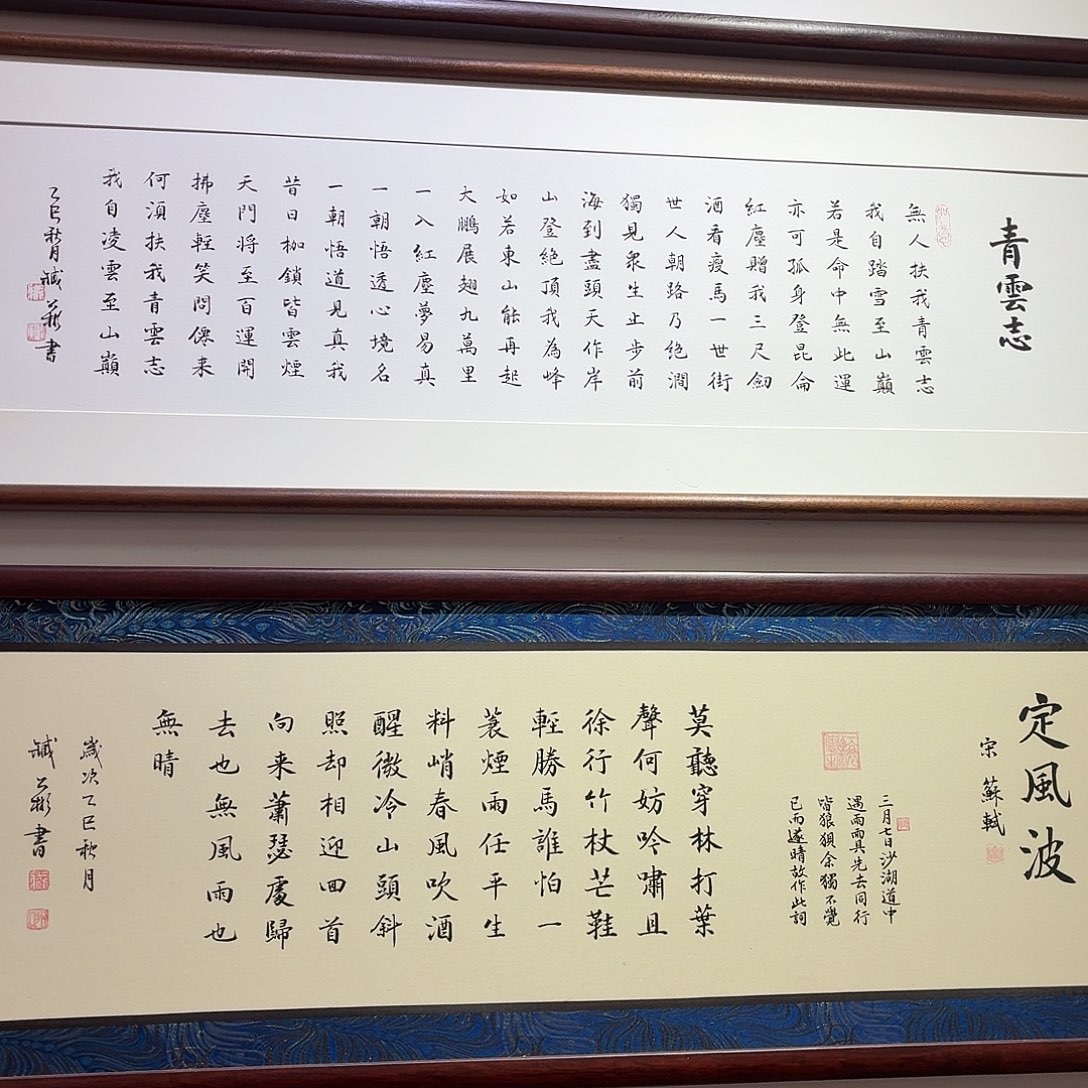 青雲志
無人扶我青雲志
我自踏雪至山巔
若是命中無此運
亦可孤身登昆侖
紅塵贈我三尺劍
酒看瘦馬一世街
世人朝路乃絕澗
獨見衆生止步前
海到盡頭天作岸
山登絕頂我為峰
如若東山能再起
大鵬展翅九萬里
一入紅塵夢易真
一朝悟透心境名
一朝悟道見真我
昔日枷鎖皆雲煙
天門將至百運開
拂塵輕笑問僊来
何須扶我青雲志
我自凌雲至山巔
乙巳秋月 書
定風波
宋 蘇軾
三月七日沙湖道中
遇雨雨具先去同行
皆狼狽余獨不覺
已而遂晴故作此詞
莫聽穿林打葉
聲何妨吟嘯且
徐行竹杖芒鞋
輕勝馬誰怕一
蓑煙雨任平生
料峭春風吹酒
醒微冷山頭斜
照却相迎回首
向来蕭瑟處歸
去也無風雨也
無晴
歲次乙巳秋月
書